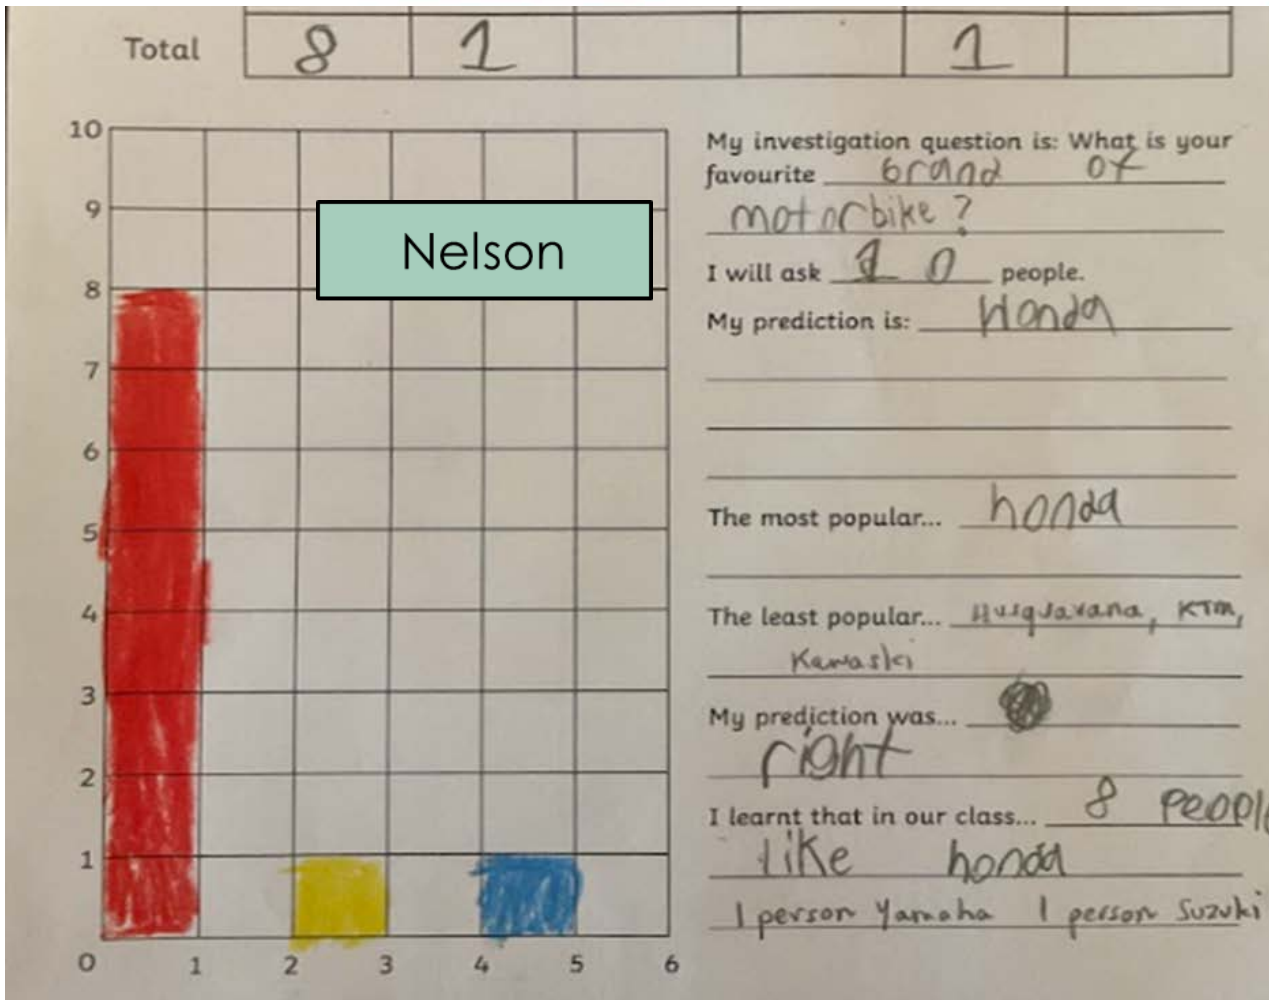 Total 8 1 1
10
9
8
7
6
5
4
3
2
1
0 1 2 3 4 5 6
Nelson
My investigation question is: What is your
favourite brand of
motorbike?
I will ask 10 people.
My prediction is: Honda
The most popular... honda
The least popular... Husqvavana, KTM,
Kawaski
My prediction was...
right
I learnt that in our class... 8 people
like honda
1 person Yamaha 1 person Suzuki